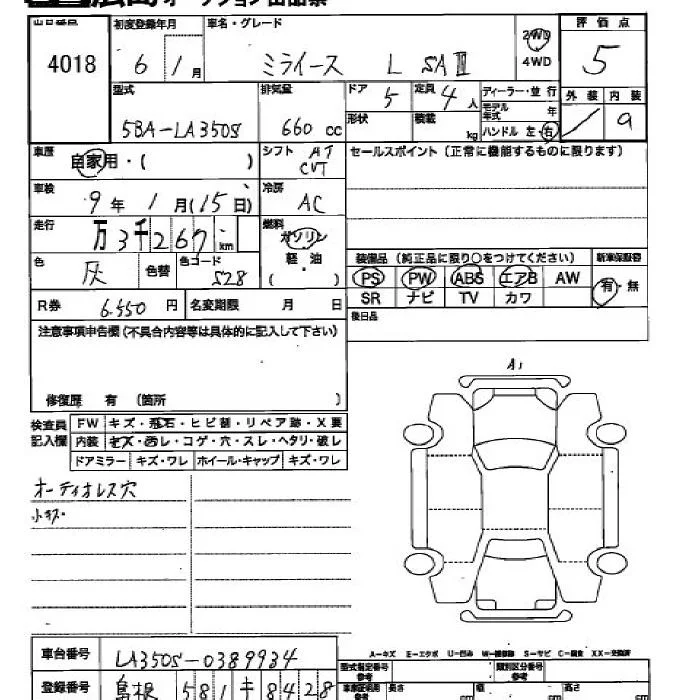 出品番号
4018
初度登録年月
6年1月
車名・グレード
ミライース L SAⅢ
2WD
4WD
評価点
5
型式
5BA-LA350S
排気量
660 cc
ドア
5
定員
4人
形状
積載
kg
ディーラー・並行
モデル年式 年
ハンドル 左・右
外装
内装
9
車歴
自家用・( )
シフト
AT
CVT
セールスポイント(正常に機能するものに限ります)
車検
9年1月(15日)
冷房
AC
走行
万3千267km
燃料
ガソリン
軽・油
( )
色
灰
色替
色コード
S28
装備品(純正品に限り○をつけてください)
新車保証書
PS PW ABS エアB AW
有・無
SR ナビ TV カワ
R券 6.550円
名変期限 月 日
後日品
注意事項申告欄(不具合内容等は具体的に記入して下さい)
修復歴 有 (箇所 )
A1
検査員
記入欄
FW キズ・飛石・ヒビ割・リペア跡・X要
内装 キズ・汚レ・コゲ・穴・スレ・ヘタリ・破レ
ドアミラー キズ・ワレ ホイール・キャップ キズ・ワレ
オーディオレス穴
小キズ
車台番号
LA350S-0389934
登録番号
島根 581 キ 8428
A-キズ E-エクボ U-凹ミ W-補修跡 S-サビ C-腐食 XX-交換済
型式指定番号
類別区分番号
長さ
cm
幅
cm
高さ
cm